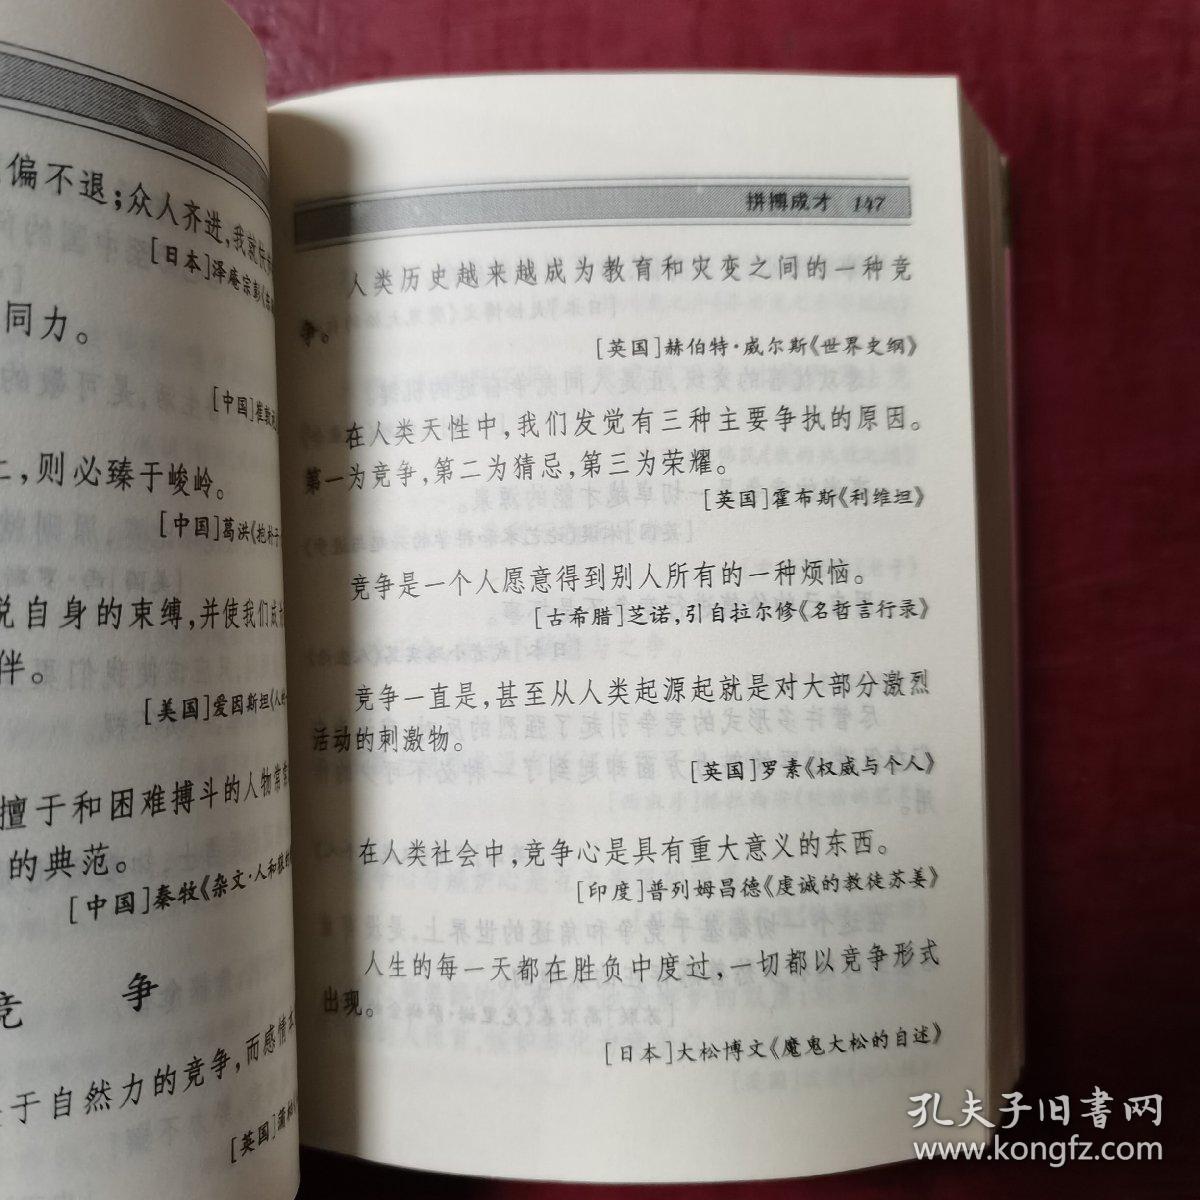 偏不退；众人齐进，我就
[日本]泽庵宗彭
同力。
[中国]崔敦礼
，则必臻于峻岭。
[中国]葛洪《抱朴子
自身的束缚，并使我们成
伴。
[美国]爱因斯坦《人的
擅于和困难搏斗的人物常常
的典范。
[中国]秦牧《杂文·人和狼的
竞 争
于自然力的竞争，而感情
[英国]蒲柏
拼搏成才 147
人类历史越来越成为教育和灾变之间的一种竞
争。
[英国]赫伯特·威尔斯《世界史纲》
在人类天性中，我们发觉有三种主要争执的原因。
第一为竞争，第二为猜忌，第三为荣耀。
[英国]霍布斯《利维坦》
竞争是一个人愿意得到别人所有的一种烦恼。
[古希腊]芝诺，引自拉尔修《名哲言行录》
竞争一直是，甚至从人类起源起就是对大部分激烈
活动的刺激物。
[英国]罗素《权威与个人》
在人类社会中，竞争心是具有重大意义的东西。
[印度]普列姆昌德《虔诚的教徒苏姜》
人生的每一天都在胜负中度过，一切都以竞争形式
出现。
[日本]大松博文《魔鬼大松的自述》
孔夫子旧书网
www.kongfz.com